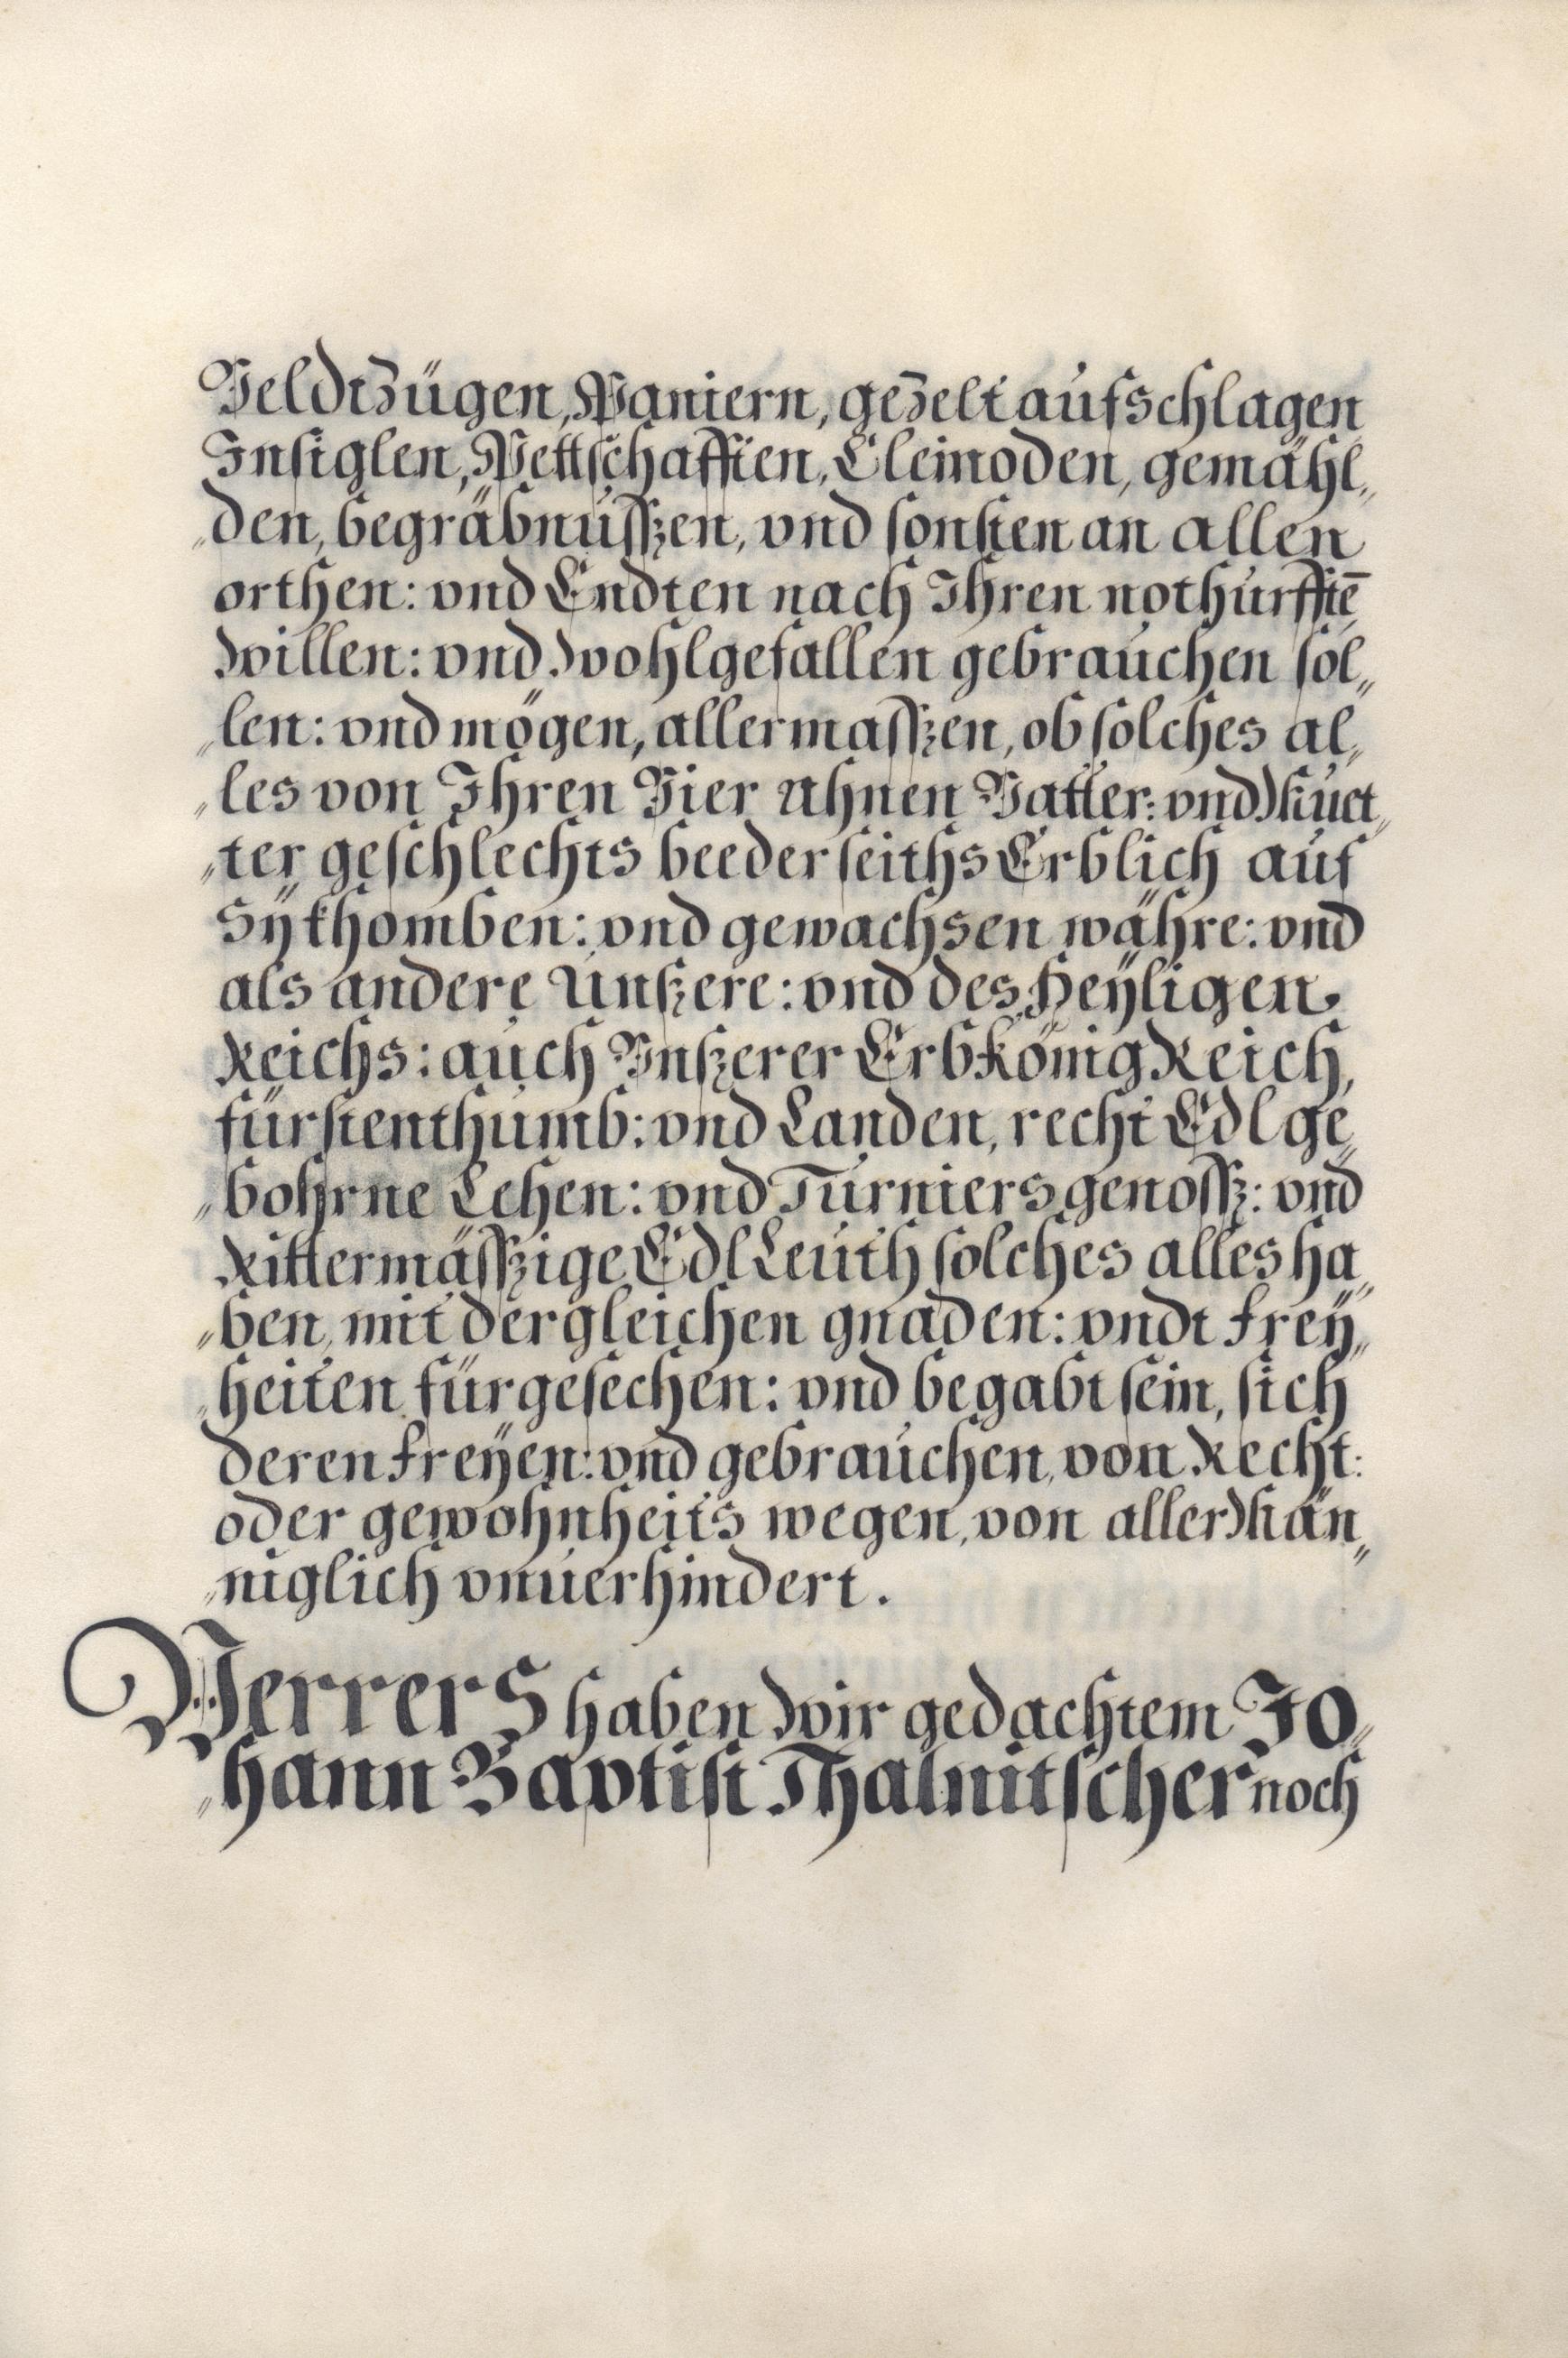 Veldtzügen, Paniern, gezelt aufschlagen
Insiglen, Pettschafften, Cleinoden, gemähl„
„den, begräbnüsszen, vnd sonsten an allen
orthen: vnd Endten nach Ihren nothurffte̅
Willen: vnd Wohlgefallen gebrauchen sol„
„len: vnd mögen, allermasszen, ob solches al„
„les von Ihren Vier Ahnen Vatter: vnd Muet„
„ter geschlechts beederseiths Erblich auf
Sÿ khomben: vnd gewachsen währe: vnd
als andere Unszere: vnd des Heÿligen
Reichs: auch Vnszerer ErbKönigReich,
fürstenthumb: vnd Landen, recht Edl ge„
„bohrne Lehen: vnd Turniersgenossz: vnd
Rittermässzige Edl Leuth solches alles ha„
„ben, mit dergleichen gnaden: vndt freÿ„
„heiten fürgesechen: vnd begabt sein, sich
deren freÿen: vnd gebrauchen, von Recht:
oder gewohnheits wegen, von aller Män„
„niglich vnuerhindert.
Verrers haben Wir gedachtem Jo„
„hann Baptist Thalnitscher noch